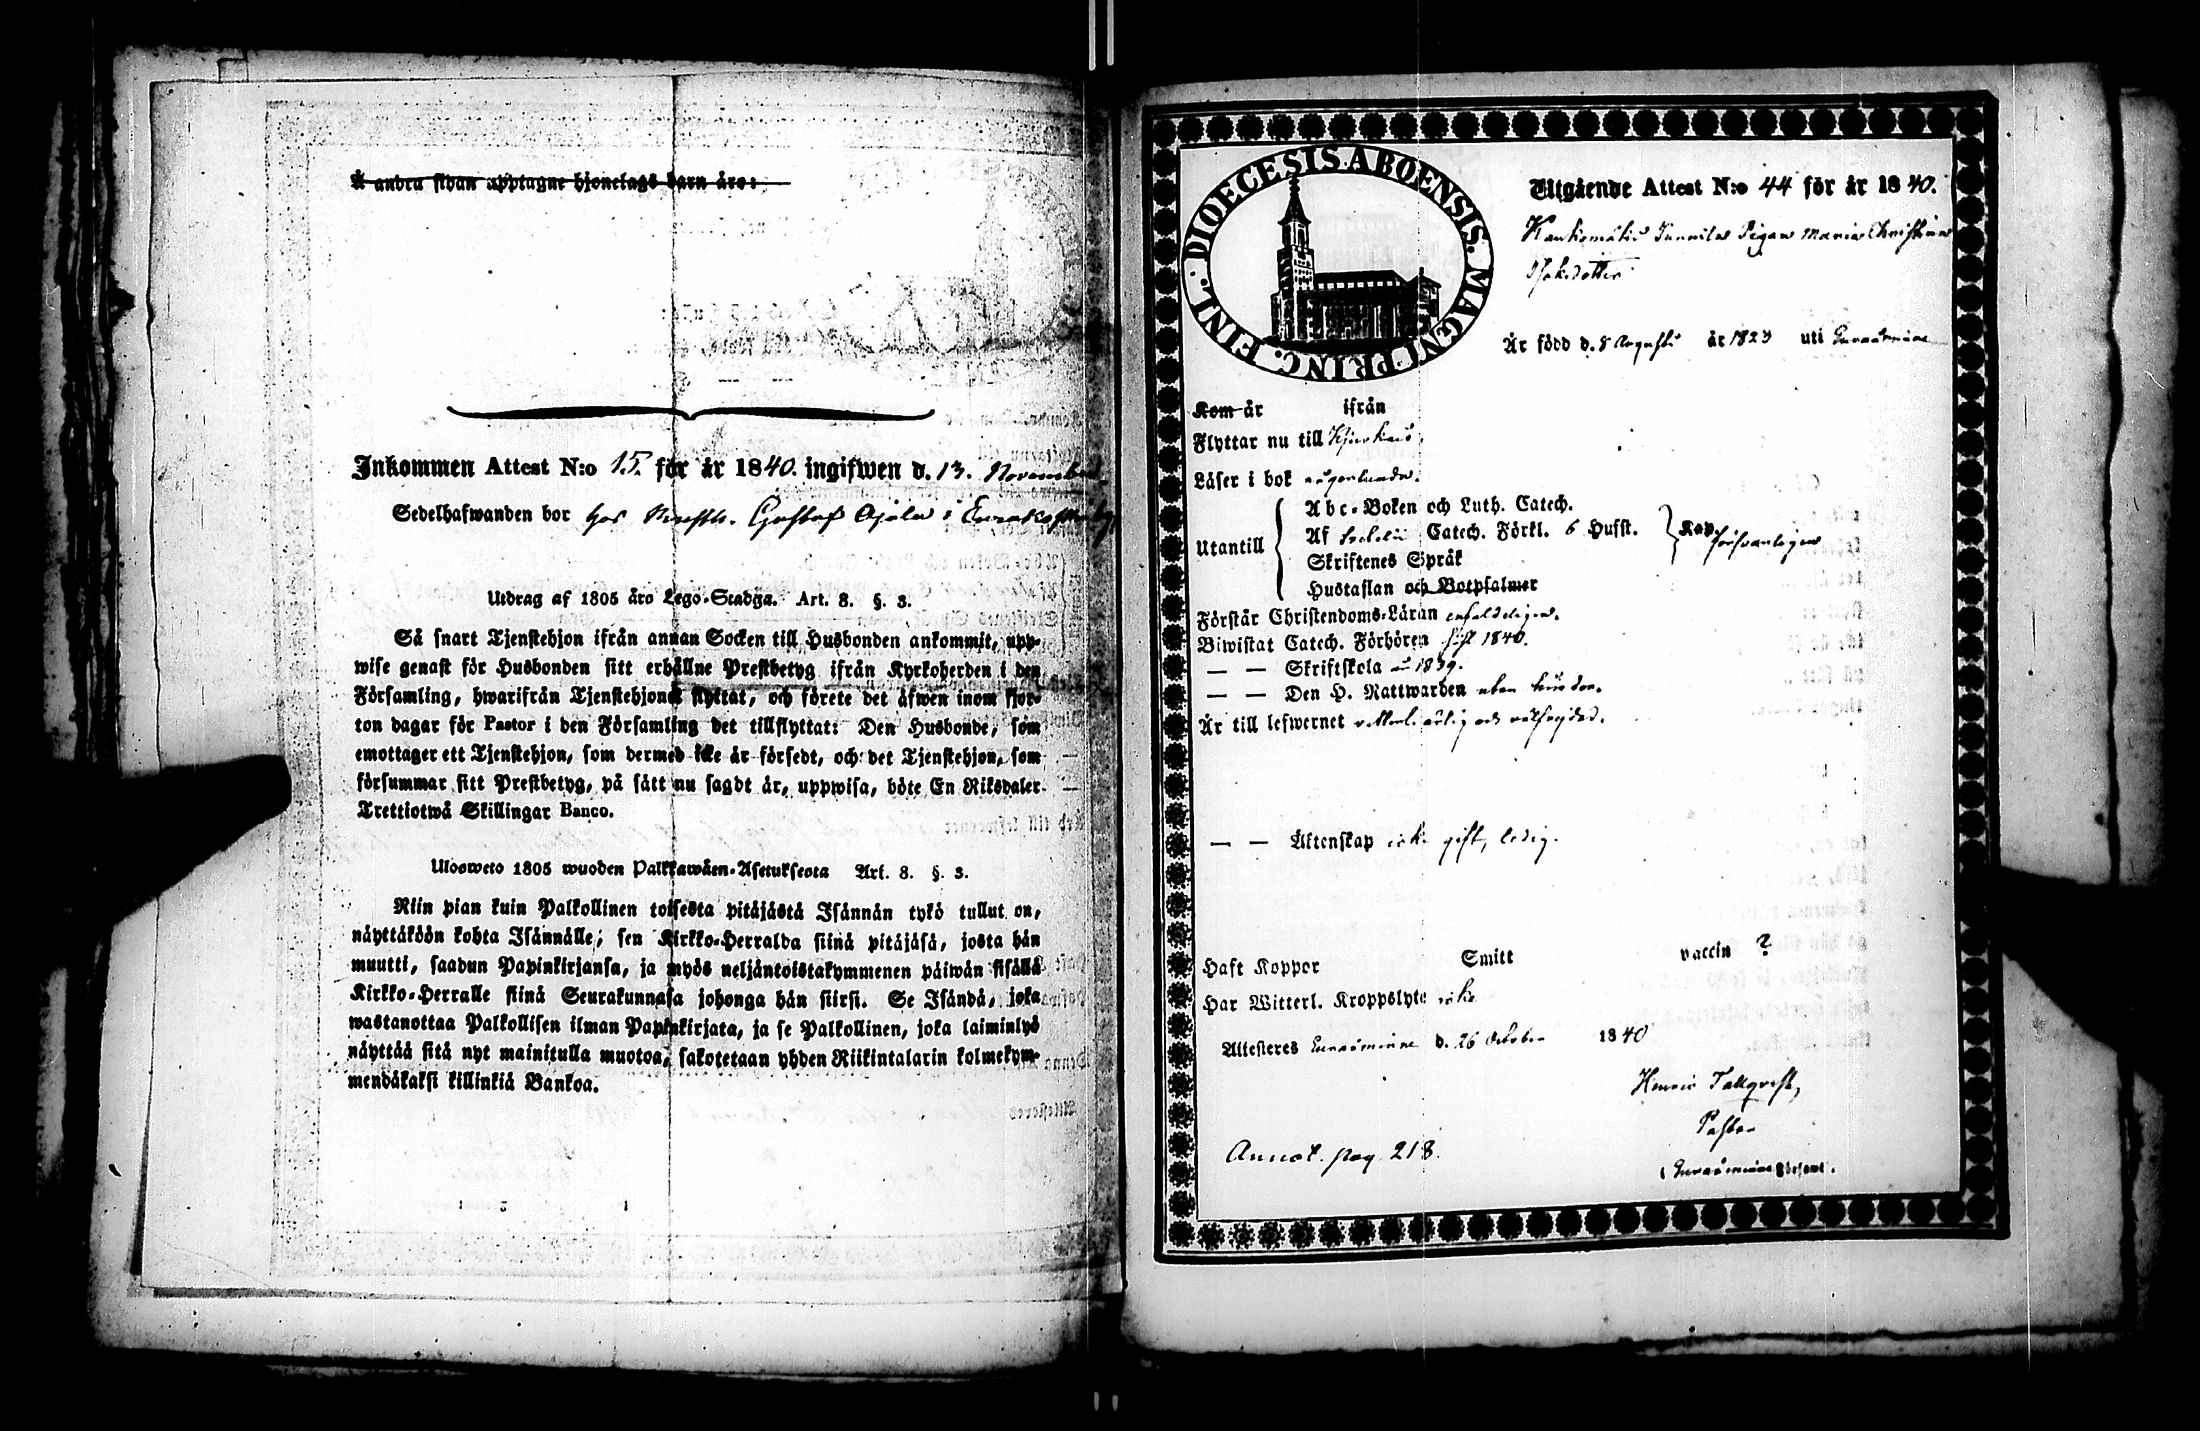 Å andra sidan upptagne hjonelags barn äro:
Inkommen Attest N:o 15. för år 1840. ingifwen d. 13. November
Sedelhafwanden bor hos Gustaf Ojala i
Utdrag af 1805 års Lego-Stadga. Art. 8. §. 3.
Så snart Tjenstehjon ifrån annan Socken till Husbonden ankommit, upp-
wise genast för Husbonden sitt erhållne Prestbetyg ifrån Kyrkoherden i den
Församling, hwarifrån Tjenstehjonet flyttat, och förete det äfwen inom fjor-
ton dagar för Pastor i den Församling det tillflyttat: Den Husbonde, som
emottager ett Tjenstehjon, som dermed icke är försedt, och det Tjenstehjon, som
försummar sitt Prestbetyg, på sätt nu sagdt är, uppwisa, böte En Riksdaler
Trettiotwå Skillingar Banco.
Ulosweto 1805 wuoden Palkkawäen-Asetuksesta Art. 8. §. 3.
Niin pian kuin Palkollinen toisesta pitäjästä Isännän tykö tullut on,
näyttäköön kohta Isännälle, sen Kirkko-Herralda siinä pitäjäsä, josta hän
muutti, saadun Papinkirjansa, ja myös neljäntoistakymmenen päiwän sisällä
Kirkko-Herralle siinä Seurakunnasa johonga hän siirsi. Se Isändä, joka
wastanottaa Palkollisen ilman Papinkirjata, ja se Palkollinen, joka laiminlyö
näyttää sitä nyt mainitulla muotoa, sakotetaan yhden Riikintalarin kolmekym-
mendäkaksi killinkiä Bankoa.
DIOECESIS ABOENSIS. MAGNI PRINC. FINL.
Utgående Attest N:o 44 för år 1840.
Pigan Maria Christina
Är född d. 8 Augusti år 1823 uti Euraåminne
Kom år ifrån
Flyttar nu till Kjukais.
Läser i bok
Utantill
Abc-Boken och Luth. Catech.
Af Catech. Förkl. 6 Hufst.
Skriftenes Språk
Hustaflan och Botpsalmer
Kap
Förstår Christendoms-Läran
Biwistat Catech. Förhören 1840.
— — Skriftskola 1839.
— — Den H. Nattwarden
Är till lefwernet ärlig och
— — Äktenskap icke gift, ledig.
Haft Koppor Smitt vaccin ?
Har Witterl. Kroppslyte icke
Attesteres Euraåminne d. 26 October 1840
Henric Tallqvist,
Pastor
i Euraåminne
Annot. pag. 218.